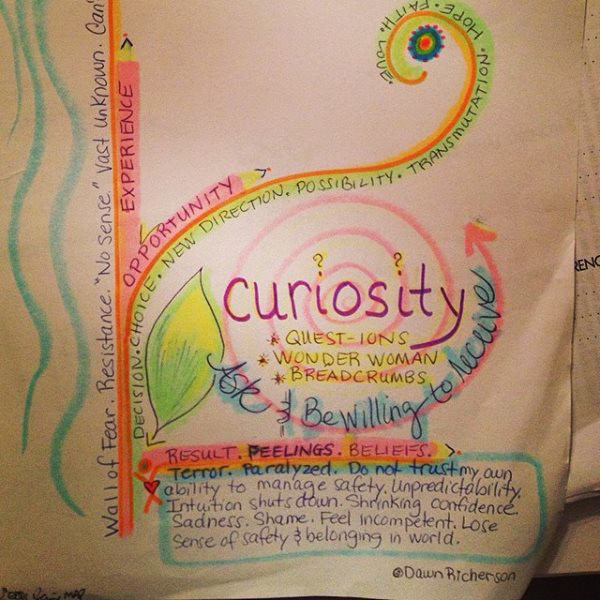 Wall of Fear. Resistance. "No sense." Vast Unknown. Can'
EXPERIENCE
OPPORTUNITY
DECISION. CHOICE. NEW DIRECTION. POSSIBILITY. TRANSMUTATION. HOPE. FAITH. LOVE.
? ?
curiosity
* QUEST-IONS
* WONDER WOMAN
* BREADCRUMBS
Ask & Be willing to receive
RESULT. FEELINGS. BELIEFS.
Terror. Paralyzed. Do not trust my own
ability to manage safety. Unpredictability.
Intuition shuts down. Shrinking confidence.
Sadness. Shame. Feel incompetent. Lose
sense of safety & belonging in world.
©Dawn Richerson
RENC